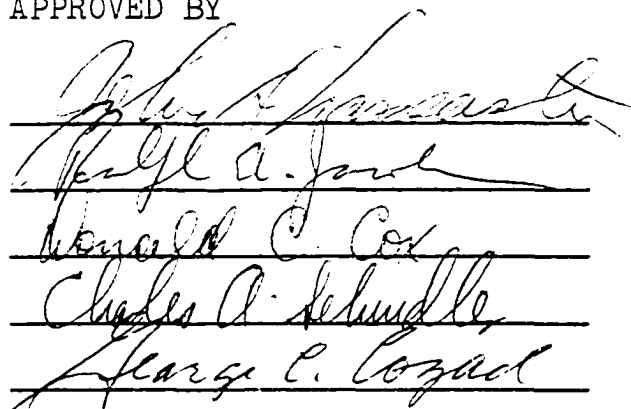 APPROVED BY
John H Lancaster
Ralph A.
Donald C. Cox
Charles A.
George C. Cozad